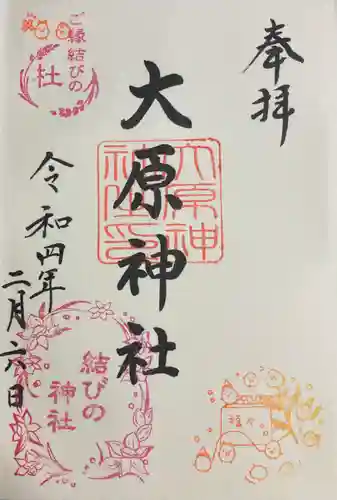 奉拝
大原神社
大原神社印
令和四年
二月六日
ご縁結びの
社
結びの
神社